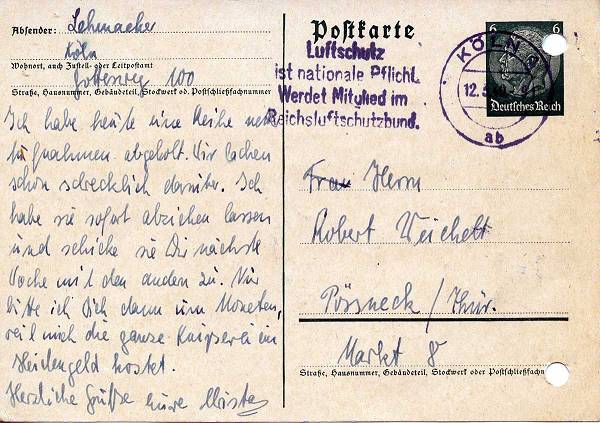 Absender: Lehmacher
Köln
Wohnort, auch Zustell- oder Leitpostamt
Gottesweg 100
Straße, Hausnummer, Gebäudeteil, Stockwerk od. Postschließfachnummer
Ich habe heute eine Reihe
Aufnahmen abgeholt. Wir lachen
schon schrecklich darüber. Ich
habe sie sofort abziehen lassen
und schicke sie Dir nächste
Woche mit den anderen zu. Nur
bitte ich Dich dann um Moneten,
weil mich die ganze Knipserei ein
Heidengeld kostet.
Herzliche Grüße
Postkarte
Luftschutz
ist nationale Pflicht.
Werdet Mitglied im
Reichsluftschutzbund.
KÖLN
12.
ab
6 6
Deutsches Reich
Frau Herrn
Robert Weichelt
Pössneck / Thür.
Markt 8
Straße, Hausnummer, Gebäudeteil, Stockwerk oder Postschließfachn